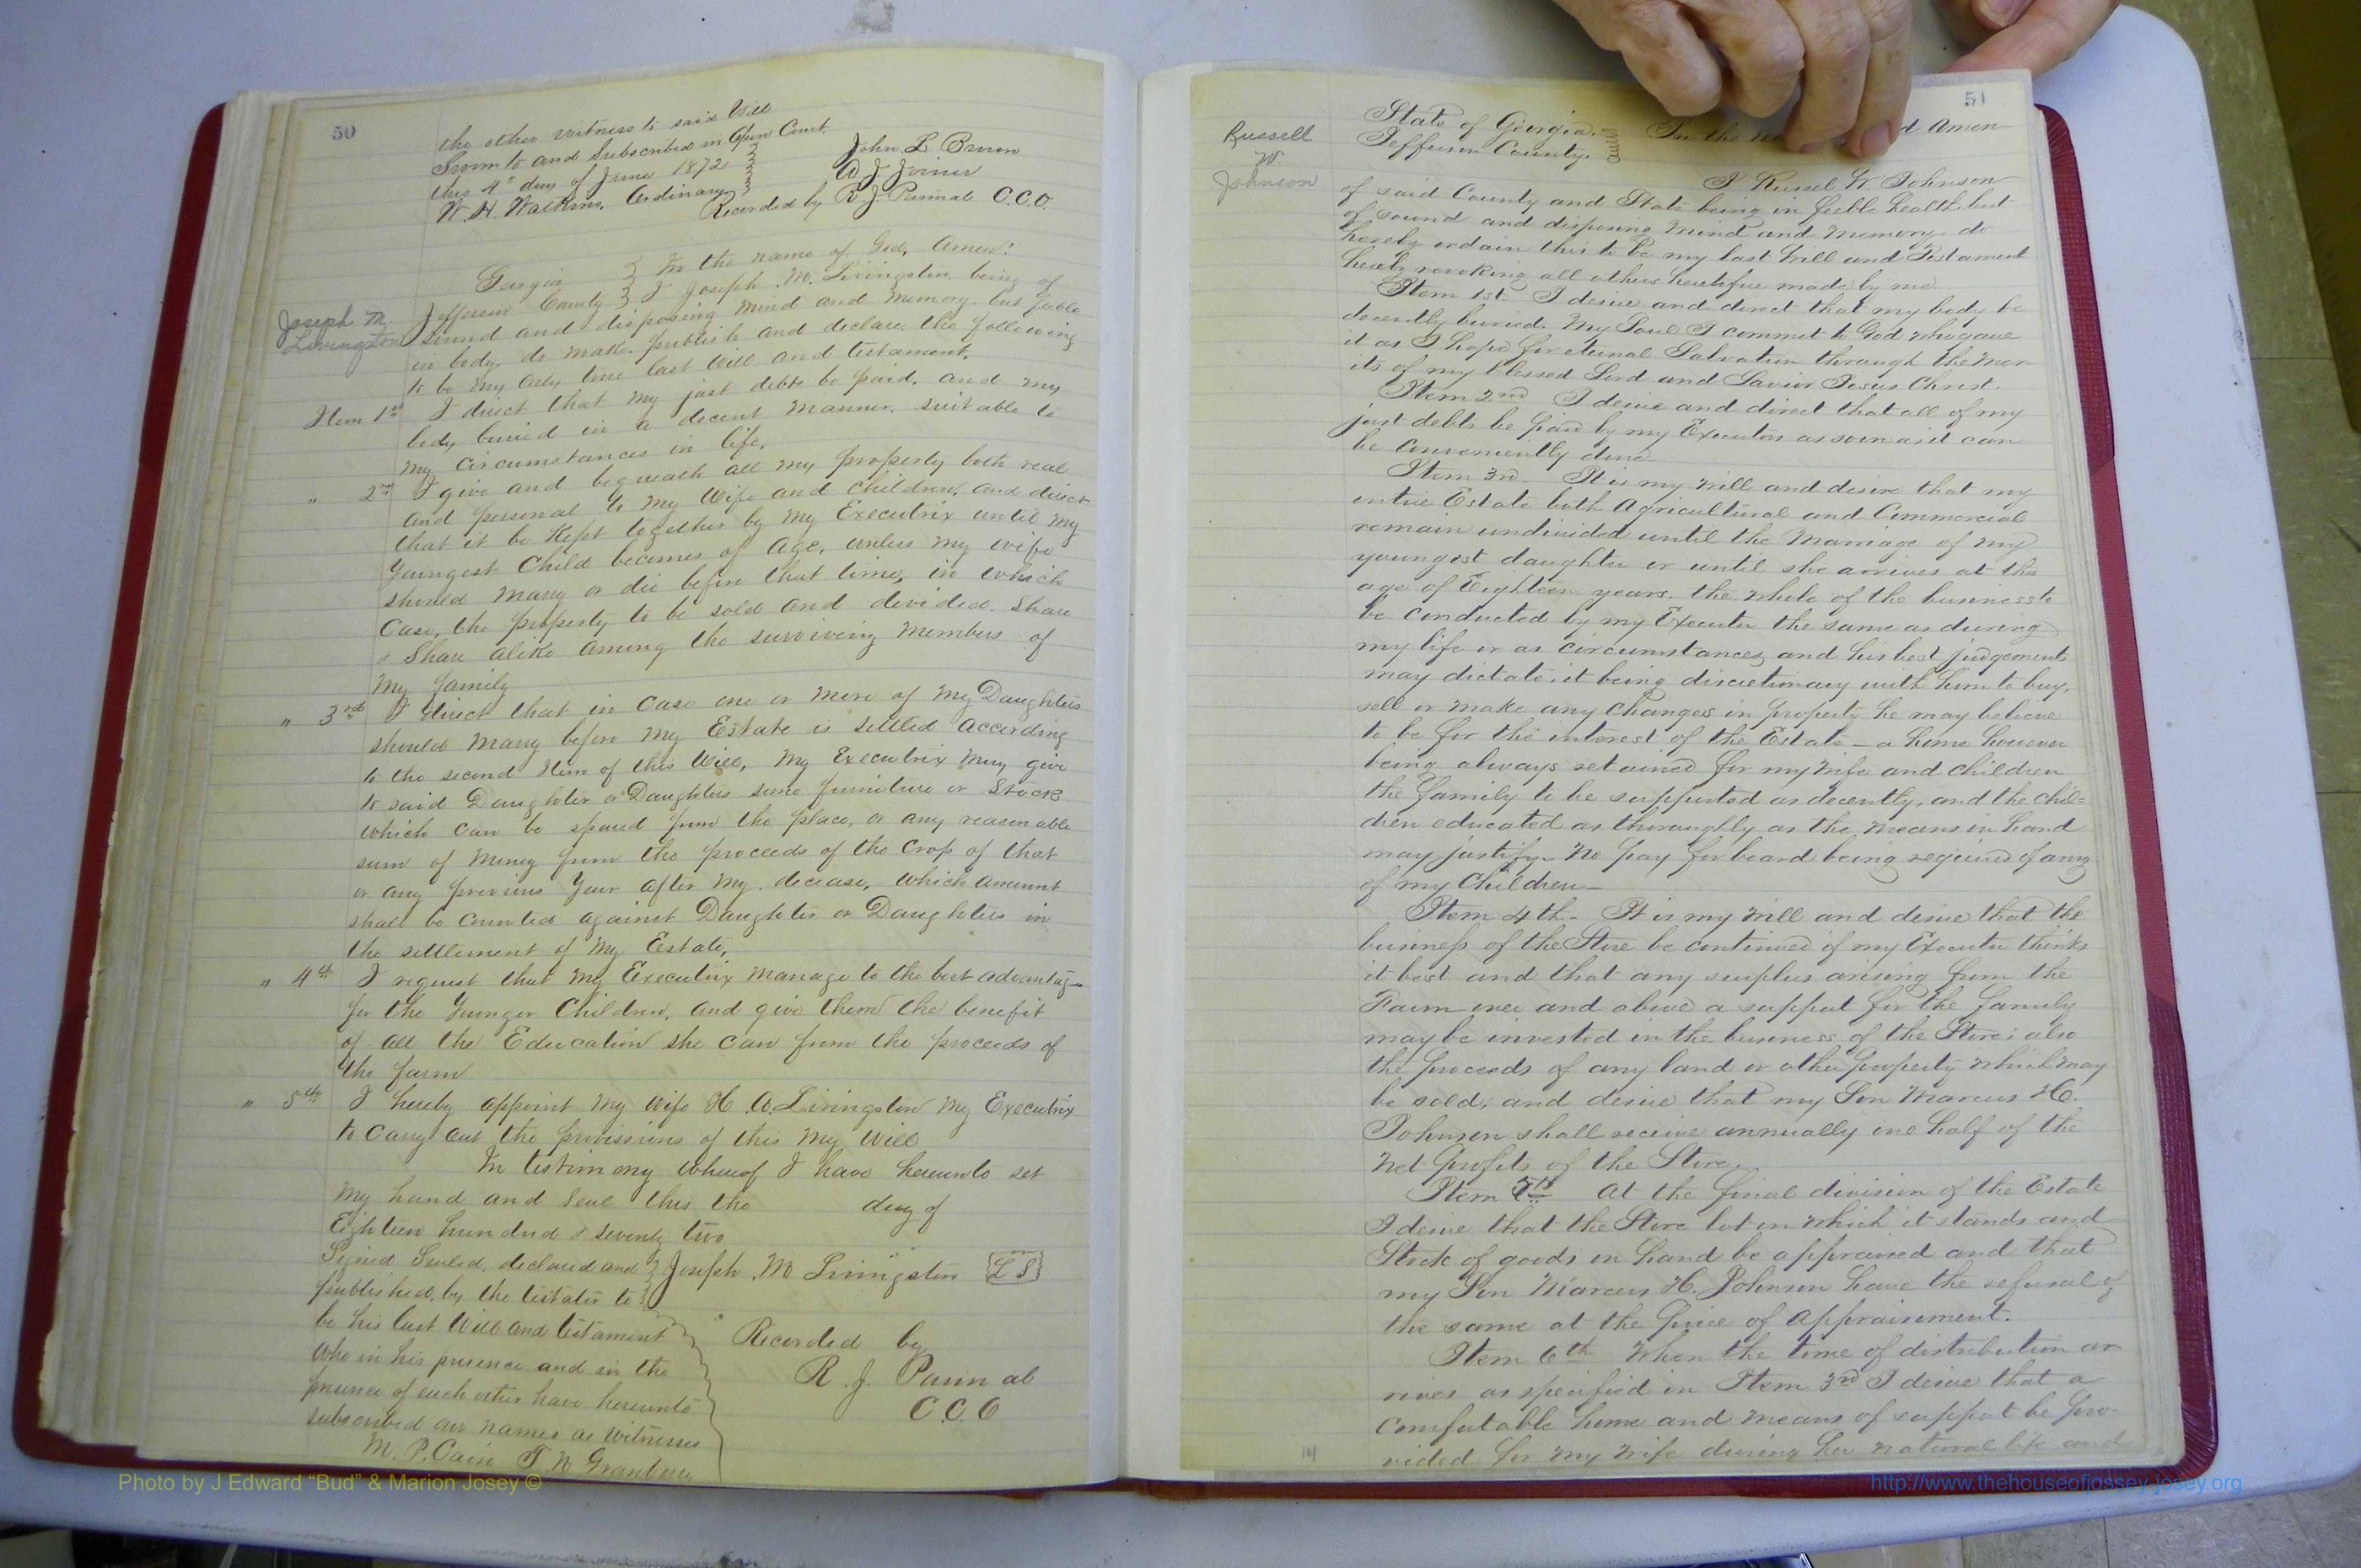 50
the other witness to said Will
Sworn to and Subscribed in Open Court
this 4th day of June 1872
W. H. Watkins, Ordinary
John L Brown
A J Joiner
Recorded by R. J. Pannal C.C.O.
Georgia } In the name of God, Amen!
Jefferson County } I Joseph M. Livingston being of
Joseph M. Livingston
sound and disposing mind and memory, but feeble
in body, do make publish and declare, the following
to be my only true last Will and testament.
Item 1st I direct that my just debts be paid, and my
body buried in a decent manner, suitable to
my circumstances in life.
" 2nd I give and bequeath all my property both real
and personal to my Wife and children, and direct
that it be kept together by my Executrix until my
Youngest Child becomes of age, unless my wife
should marry or die before that time, in which
case, the property to be sold and devided. Share
& Share alike among the surviveing members of
my family
" 3rd I direct that in case one or more of my Daughters
should marry before my Estate is settled according
to the second Item of this Will, my Executrix may give
to said Daughter or Daughters some furniture or Stock
which can be spared from the place, or any reasonable
sum of money from the proceeds of the crop of that
or any previous Year after my decease, which amount
shall be counted against Daughter or Daughters in
the settlement of my Estate,
" 4th I request that my Executrix manage to the best advantage
for the Younger Children, and give them the benefit
of all the Education she can from the proceeds of
the farm
" 5th I hereby appoint my wife H. A. Livingston my Executrix
to carry out the provissions of this my Will
In testimony whereof I have hereunto set
my hand and Seal this the day of
Eighteen hundred & seventy two
Signed Sealed, declared and } Joseph M Livingston {L S}
published, by the testator to
be his last Will and testament
who in his presence and in the
presence of each other have hereunto
subscribed our names as witnesses
M. P. Cain T N Granberry
Recorded by
R. J. Pannal
C.C.O
51
Russell
W.
Johnson
State of Georgia.
Jefferson County.
In the d Amen
I Russel W. Johnson
of said County and State being in feeble health, but
of sound and disposing mind and memory do
hereby ordain this to be my last Will and Testament
hereby revoking all others heretofore made by me
Item 1st I desire and direct that my body be
decently buried. My Soul I commit to God who gave
it as I hope for eternal Salvation through the mer
its of my blessed Lord and Savior Jesus Christ.
Item 2nd I desire and direct that all of my
just debts be paid by my Executor as soon as it can
be conveniently done
Item 3rd It is my will and desire that my
entire Estate both Agricultural and Commercial
remain undivided until the Marriage of my
youngest daughter or until she arrives at the
age of Eighteen years. the whole of the business to
be conducted by my Executor the same as during
my life or as circumstances and his best judgements
may dictate, it being discretionary with him to buy,
sell or make any changes in property he may believe
to be for the interest of the Estate — a home however
being always retained for my wife and children
the family to be supported as decently, and the chil=
dren educated as thoroughly as the means in hand
may justify — No pay for board being required of any
of my Children —
Item 4th — It is my will and desire that the
business of the Store be continued if my Executor thinks
it best and that any surplus arising from the
Farm over and above a support for the family
may be invested in the business of the Store; also
the proceeds of any land or other property which may
be sold; and desire that my Son Marcus H.
Johnson shall receive annually one half of the
net profits of the Store.
Item 5th At the final division of the Estate
I desire that the Store lot on which it stands and
Stock of goods on hand be appraised and that
my Son Marcus H. Johnson have the refusal of
the same at the price of appraisement.
Item 6th When the time of distribution ar
rives as specified in Item 3rd I desire that a
comfortable home and means of support be pro-
vided for my wife during her natural life and
Photo by J Edward “Bud” & Marion Josey ©
http://www.thehouseofjossey-josey.org